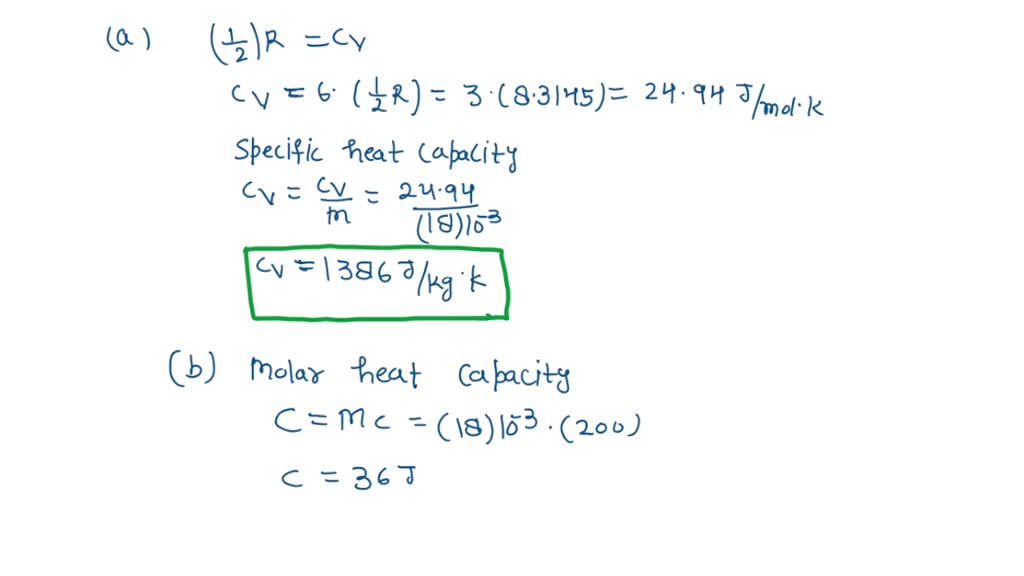 (a) (1/2)R = Cv
Cv = 6·(1/2 R) = 3·(8.3145) = 24.94 J/mol·k
Specific heat capacity
Cv = Cv/m = 24.94/(18)10^-3
Cv = 1386 J/kg·k
(b) Molar heat capacity
C = Mc = (18)10^-3·(200)
C = 36 J